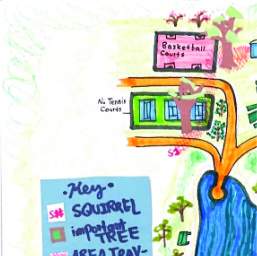 Basketball
Courts
No Tennis
Courts
S#
•Key•
S# SQUIRREL
important
TREE
AREA TRAV-